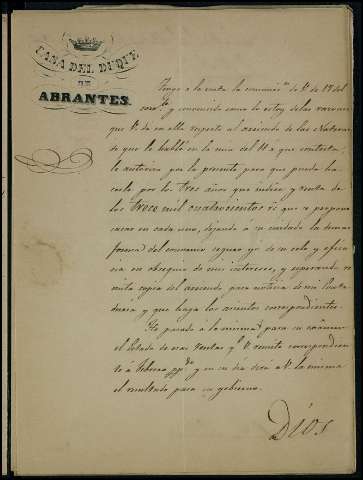 CASA DEL DUQUE
DE
ABRANTES.
Tengo a la vista la comunicon de V. de 18 del
corrte y convencido como lo estoy de las razones
que V. da en ella respecto al arriendo de las
de que le hablé en la mia del 11 a que contesta,
le autorizo por la presente para que pueda ha-
cerlo por los tres años que indica y renta de
los trece mil cuatrocientos rs que se propone
sacar en cada uno, dejando a su cuidado la
forma del convenio seguro yo de su celo y efica-
cia en obsequio de mis intereses, y esperando re-
mita copia del arriendo para noticia de mi Conta-
duria y que haga los asientos correspondientes.
He pasado a la misma para su
el Estado de esas rentas q. V. remite correspondien-
te á Febrero ppdo y en su dia dira a V. la misma
el resultado para su gobierno.
Dios